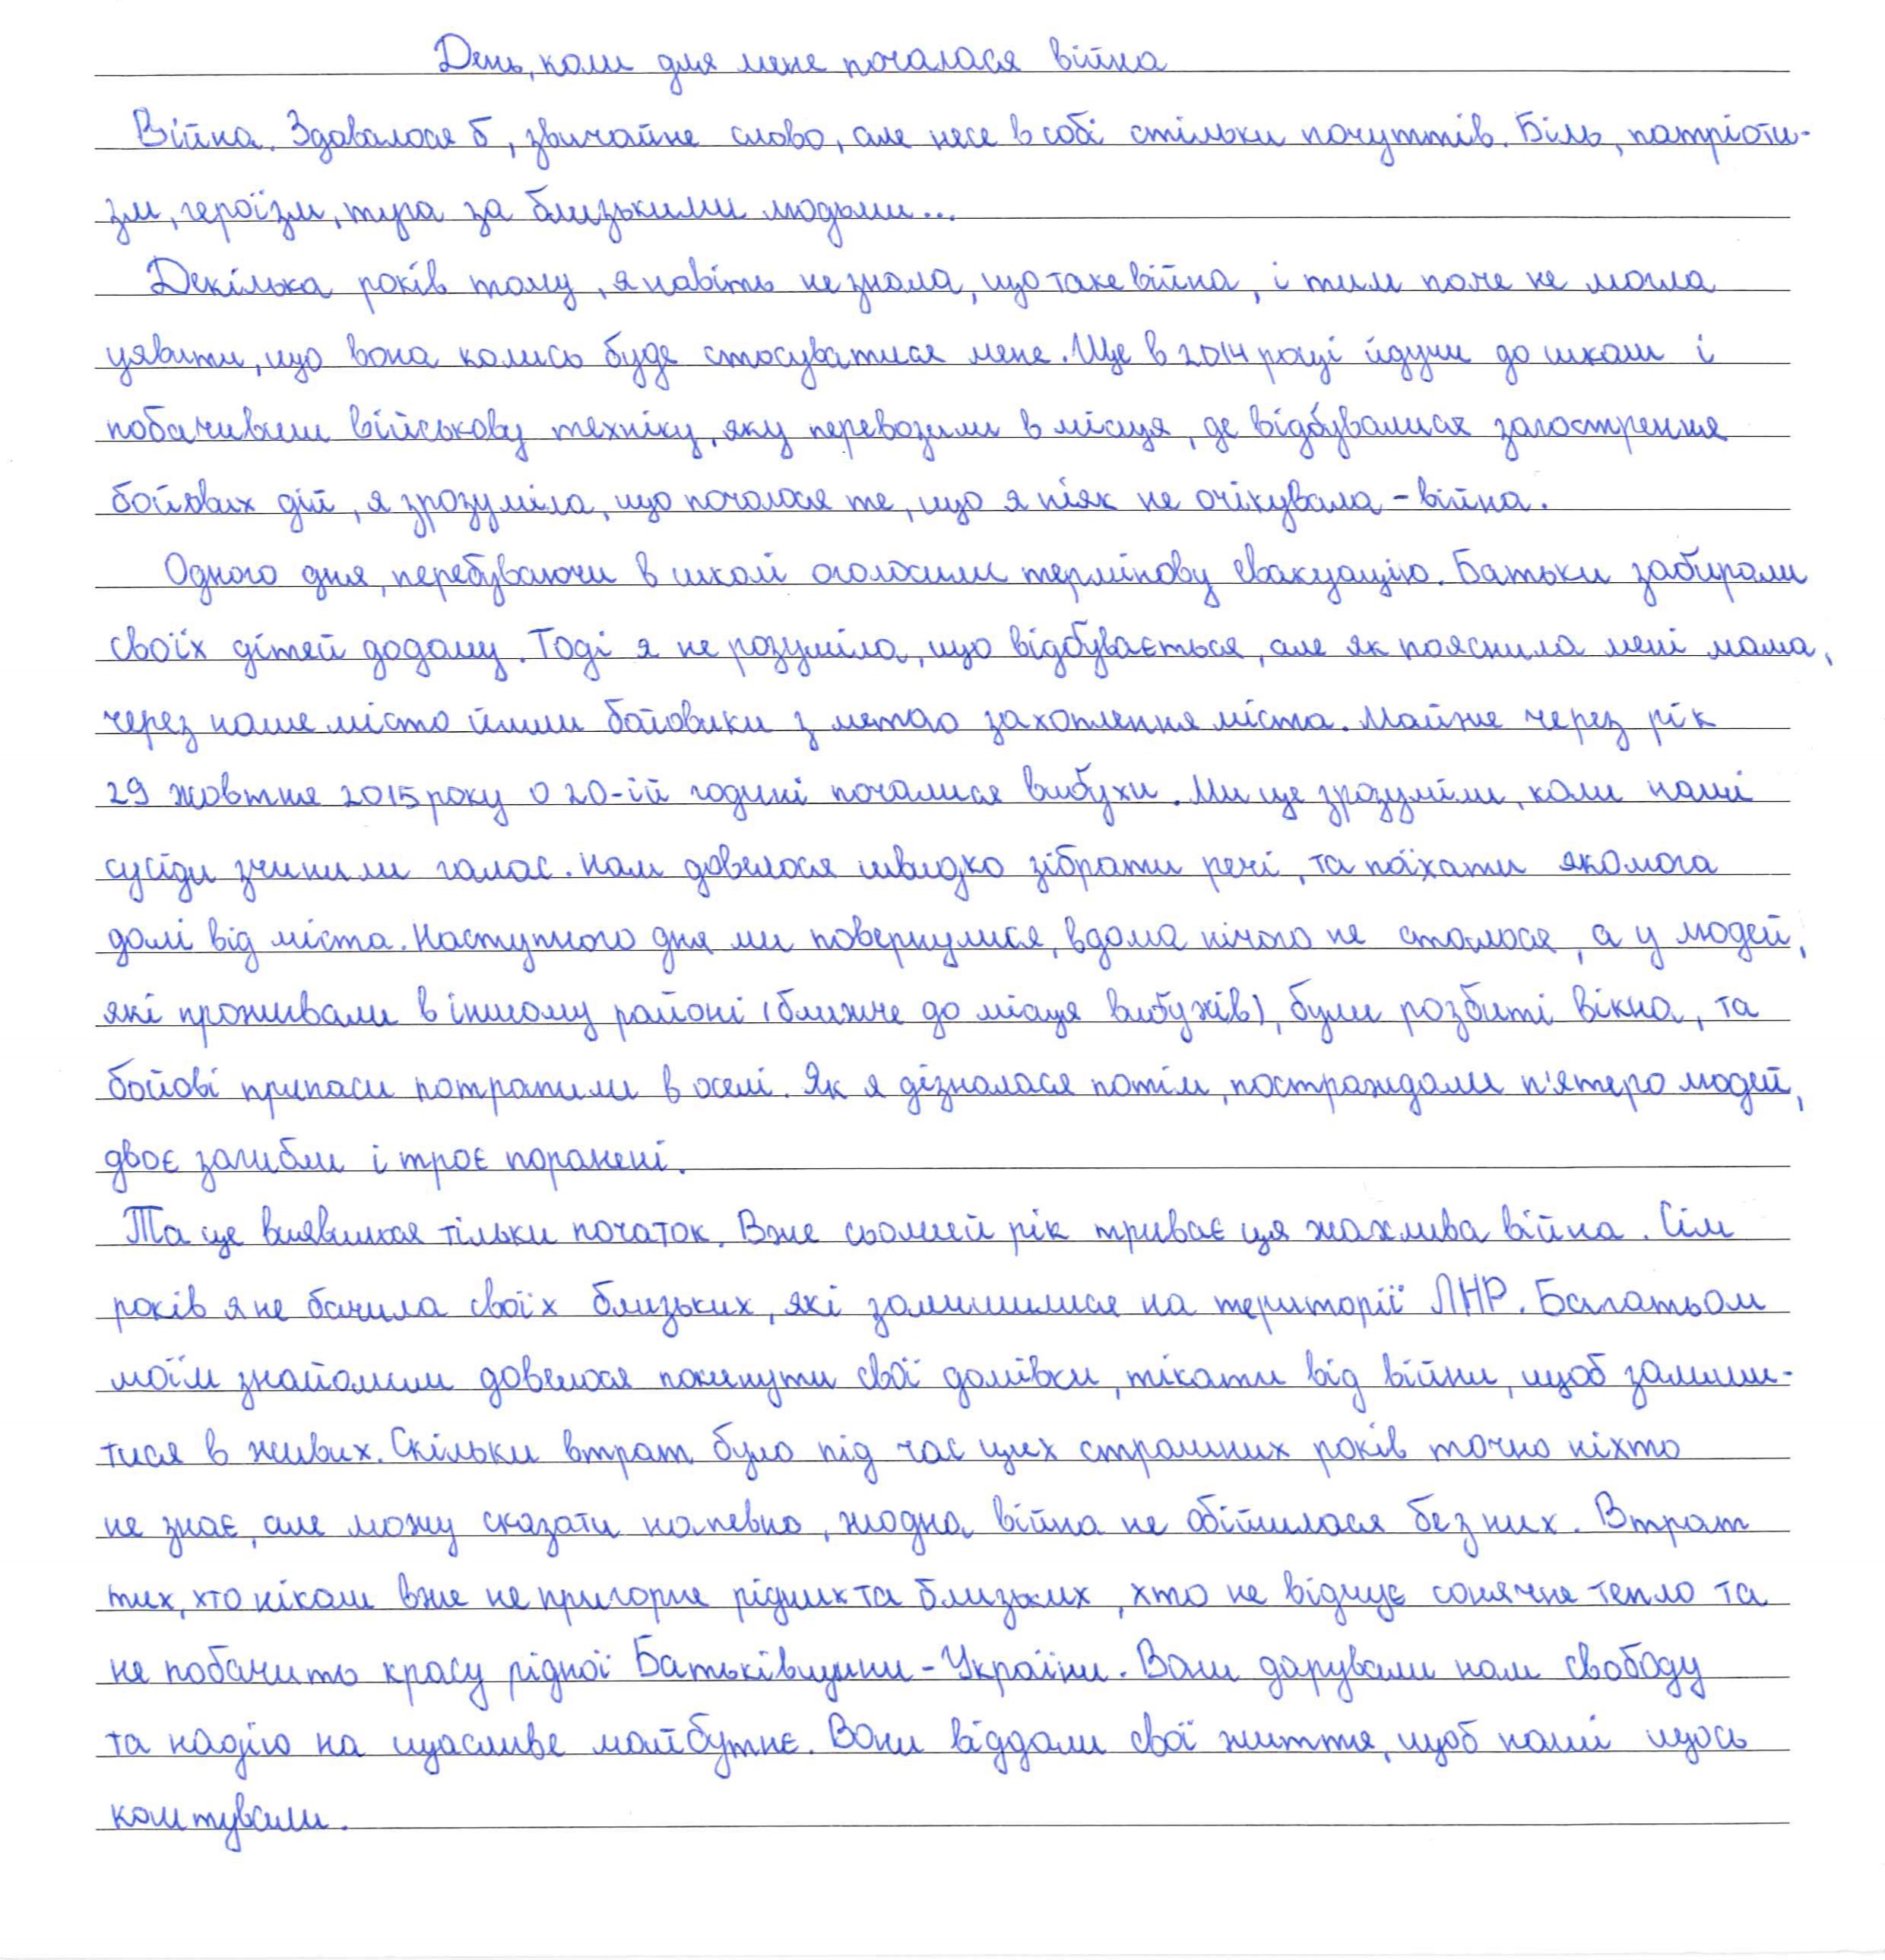 День, коли для мене почалася війна
Війна. Здавалося б, звичайне слово, але несе в собі стільки почуттів. Біль, патріоти-
зм, героїзм, туга за близькими людьми...
Декілька років тому, я навіть не знала, що таке війна, і тим паче не могла
уявити, що вона колись буде стосуватися мене. Ще в 2014 році йдучи до школи і
побачивши військову техніку, яку перевозили в місця, де відбувалися загострення
бойових дій, я зрозуміла, що почалося те, що я ніяк не очікувала - війна.
Одного дня, перебуваючи в школі оголосили термінову евакуацію. Батьки забирали
своїх дітей додому. Тоді я не розуміла, що відбувається, але як пояснила мені мама,
через наше місто йшли бойовики з метою захоплення міста. Майже через рік
29 жовтня 2015 року о 20-ій годині почалися вибухи. Ми це зрозуміли, коли наші
сусіди зчинили галас. Нам довелося швидко зібрати речі, та поїхати якомога
далі від міста. Наступного дня ми повернулися, вдома нічого не сталося, а у людей,
які проживали в іншому районі (ближче до місця вибухів), були розбиті вікна, та
бойові припаси потрапили в оселі. Як я дізналася потім, постраждали п'ятеро людей,
двоє загибли і троє поранені.
Та це виявилося тільки початок. Вже сьомий рік триває ця жахлива війна. Сім
років я не бачила своїх близьких, які залишилися на території ЛНР. Багатьом
моїм знайомим довелося покинути свої домівки, тікати від війни, щоб залиши-
тися в живих. Скільки втрат було під час цих страшних років точно ніхто
не знає, але можу сказати напевно, жодна війна не обійшлася без них. Втрат
тих, хто ніколи вже не пригорне рідних та близьких, хто не відчує сонячне тепло та
не побачить красу рідної Батьківщини - України. Вони дарували нам свободу
та надію на щасливе майбутнє. Вони віддали свої життя, щоб наші щось
коштували.